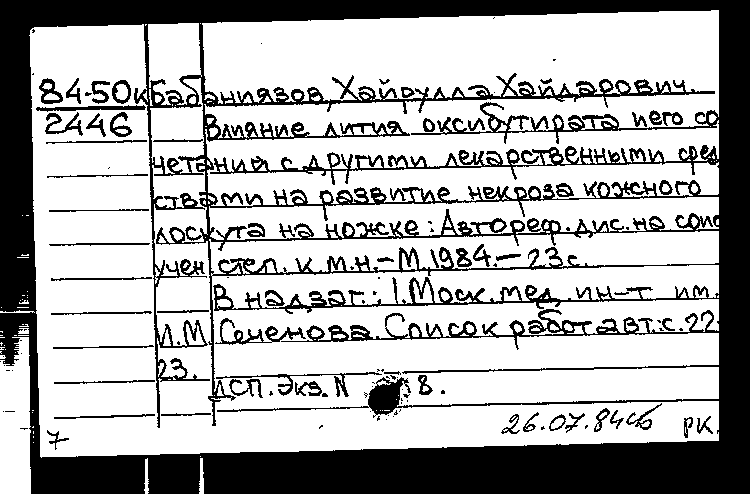 84-50к Бабаниязов, Хайрулла Хайдарович.
2446 Влияние лития оксибутирата и его со
четании с другими лекарственными сред
ствами на развитие некроза кожного
лоскута на ножке: Автореф. дис. на соис
учен степ. к.м.н.-М, 1984.- 23с.
В надзаг.: 1. Моск. мед. ин-т им.
И.М Сеченова. Список работ авт.: с. 22-
23.
ДСП. Экз. N 8.
26.07.84
РК.
7